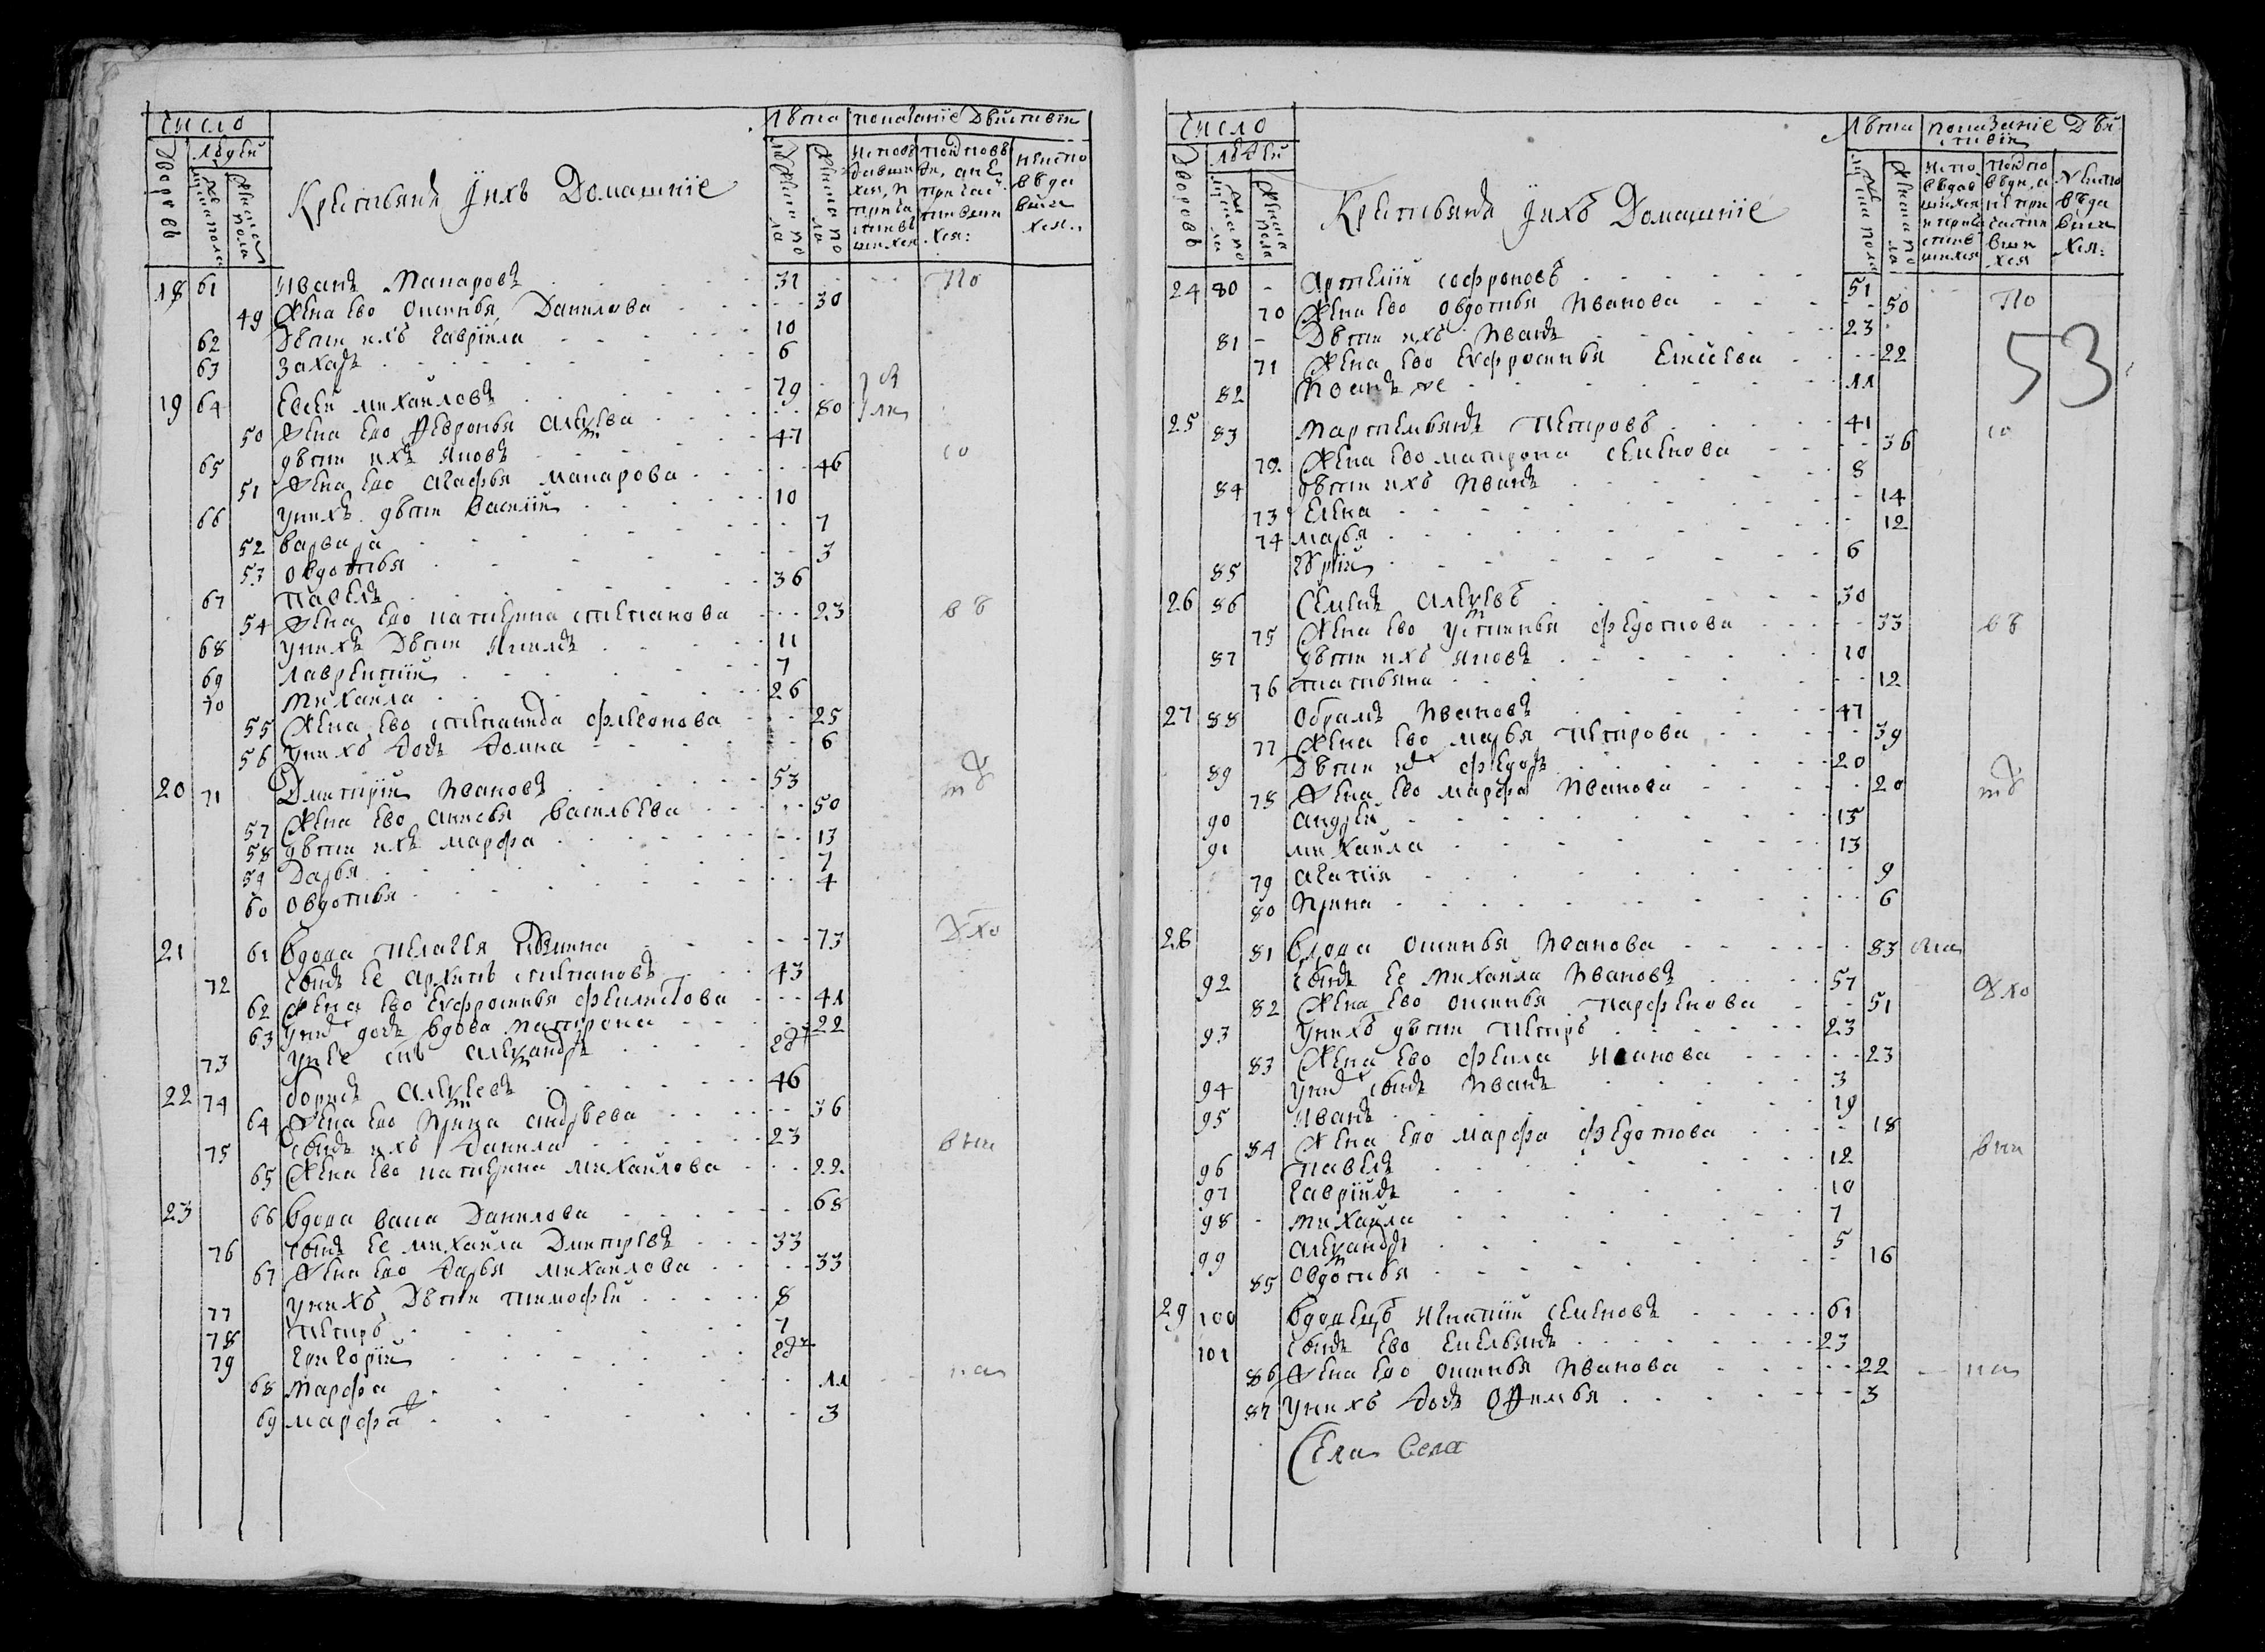 Число
Лѣта показаніе Дѣиствиі
Дворовъ
Людеи
Мужеска пола
Женска пола
Крестьянѣ Уихъ Домашніе
Мужеска пола
Женска пола
18 61 Иванъ Макаровъ 31 По
49 Жена Ево Осинья Данилова 30
62 Дѣти ихъ Гавріила 10
63 Захаръ 6
19 64 Евсей михаиловъ 79
50 Жена Ево Февронья Алексѣева 80
65 дѣти ихъ Яковъ 47 со
51 Жена Ево Агафья макарова 46
66 Унихъ дѣти Василіи 10
52 варвара 7
53 овдотья 3
67 павелъ 36
54 Жена Ево катерина степанова 23 вб
68 Унихъ Дѣти Якимъ 11
69 Лаврентіи 7
70 Михаила 26
55 Жена Ево степанида флегонова 25
56 Унихъ Дочь Домна 6
20 71 Дмитріи Ивановъ 53
57 Жена Ево анисья Васильева 50
58 дѣти ихъ марфа 13
59 Дарья 7
60 Овдотья 4
21 61 вдова пелагея 73 Дхо
72 сынъ Ее архипъ степановъ 43
62 Жена Ево Ефросинья филипова 41
63 Уних дочь вдова матрона 22
73 Унее снъ александръ
22 74 борисъ алексѣевъ 46
64 Жена Ево Ирина андрѣева 36
75 сынъ ихъ Данила 23
65 Жена Ево катерина михаилова 22
23 66 вдова васса Данилова 68
76 сынъ Ее михаила Дмитревъ 33
67 Жена Ево Дарья михаилова 33
77 Унихъ Дѣти тимофеи 8
78 петръ 7
79 григоріи
68 марфа 11
69 марфаж 3
Число
Лѣта показаніе Дѣиствиі
Дворовъ
Людеи
Мужеска пола
Женска пола
Крестьянѣ Уихъ Домашніе
Мужеска пола
Женска пола
53
24 80 Артеміи софроновъ 51
70 Жена Ево овдотья Иванова 50 По
81 Дѣти ихъ Иванъ 23
71 Жена Ево Ефросинья Елисеева 22
82 Иванъ же 11
25 83 Мартемьянъ Петровъ 41 со
72 Жена Ево матрона семенова 36
84 дѣти ихъ Иванъ 8
73 Елена 14
74 марья 12
85 Юріи 6
26 86 Семенъ алексѣевъ 30
75 Жена Ево Устинья федотова 33 вб
87 дѣти ихъ Яковъ 10
76 татьяна 12
27 88 обрамъ Ивановъ 47
77 Жена Ево марья петрова 39
89 Дѣти их федоръ 20
78 Жена Ево марфа Иванова 20
90 андреи 15
91 михаила 13
79 агапія 9
80 Ирина 6
28 81 вдова осинья Иванова 83
92 сынъ Ее михаила Ивановъ 57
82 Жена Ево осинья парфенова 51 Дхо
93 Унихъ дѣти петръ 23
83 Жена Ево фекла Иванова 23
94 Уних сынъ Иванъ 3
95 Иванъ 19
84 Жена Ево марфа федотова 18
96 павелъ 12
97 гавріилъ 10
98 михаила 7
99 александръ 5
85 овдотья 16
29 100 вдовецъ Игнатіи семеновъ 61
101 сынъ Ево Емельянъ 23
86 Жена Ево осинья Иванова 22
87 Унихъ дочь офимья 3
Села Села